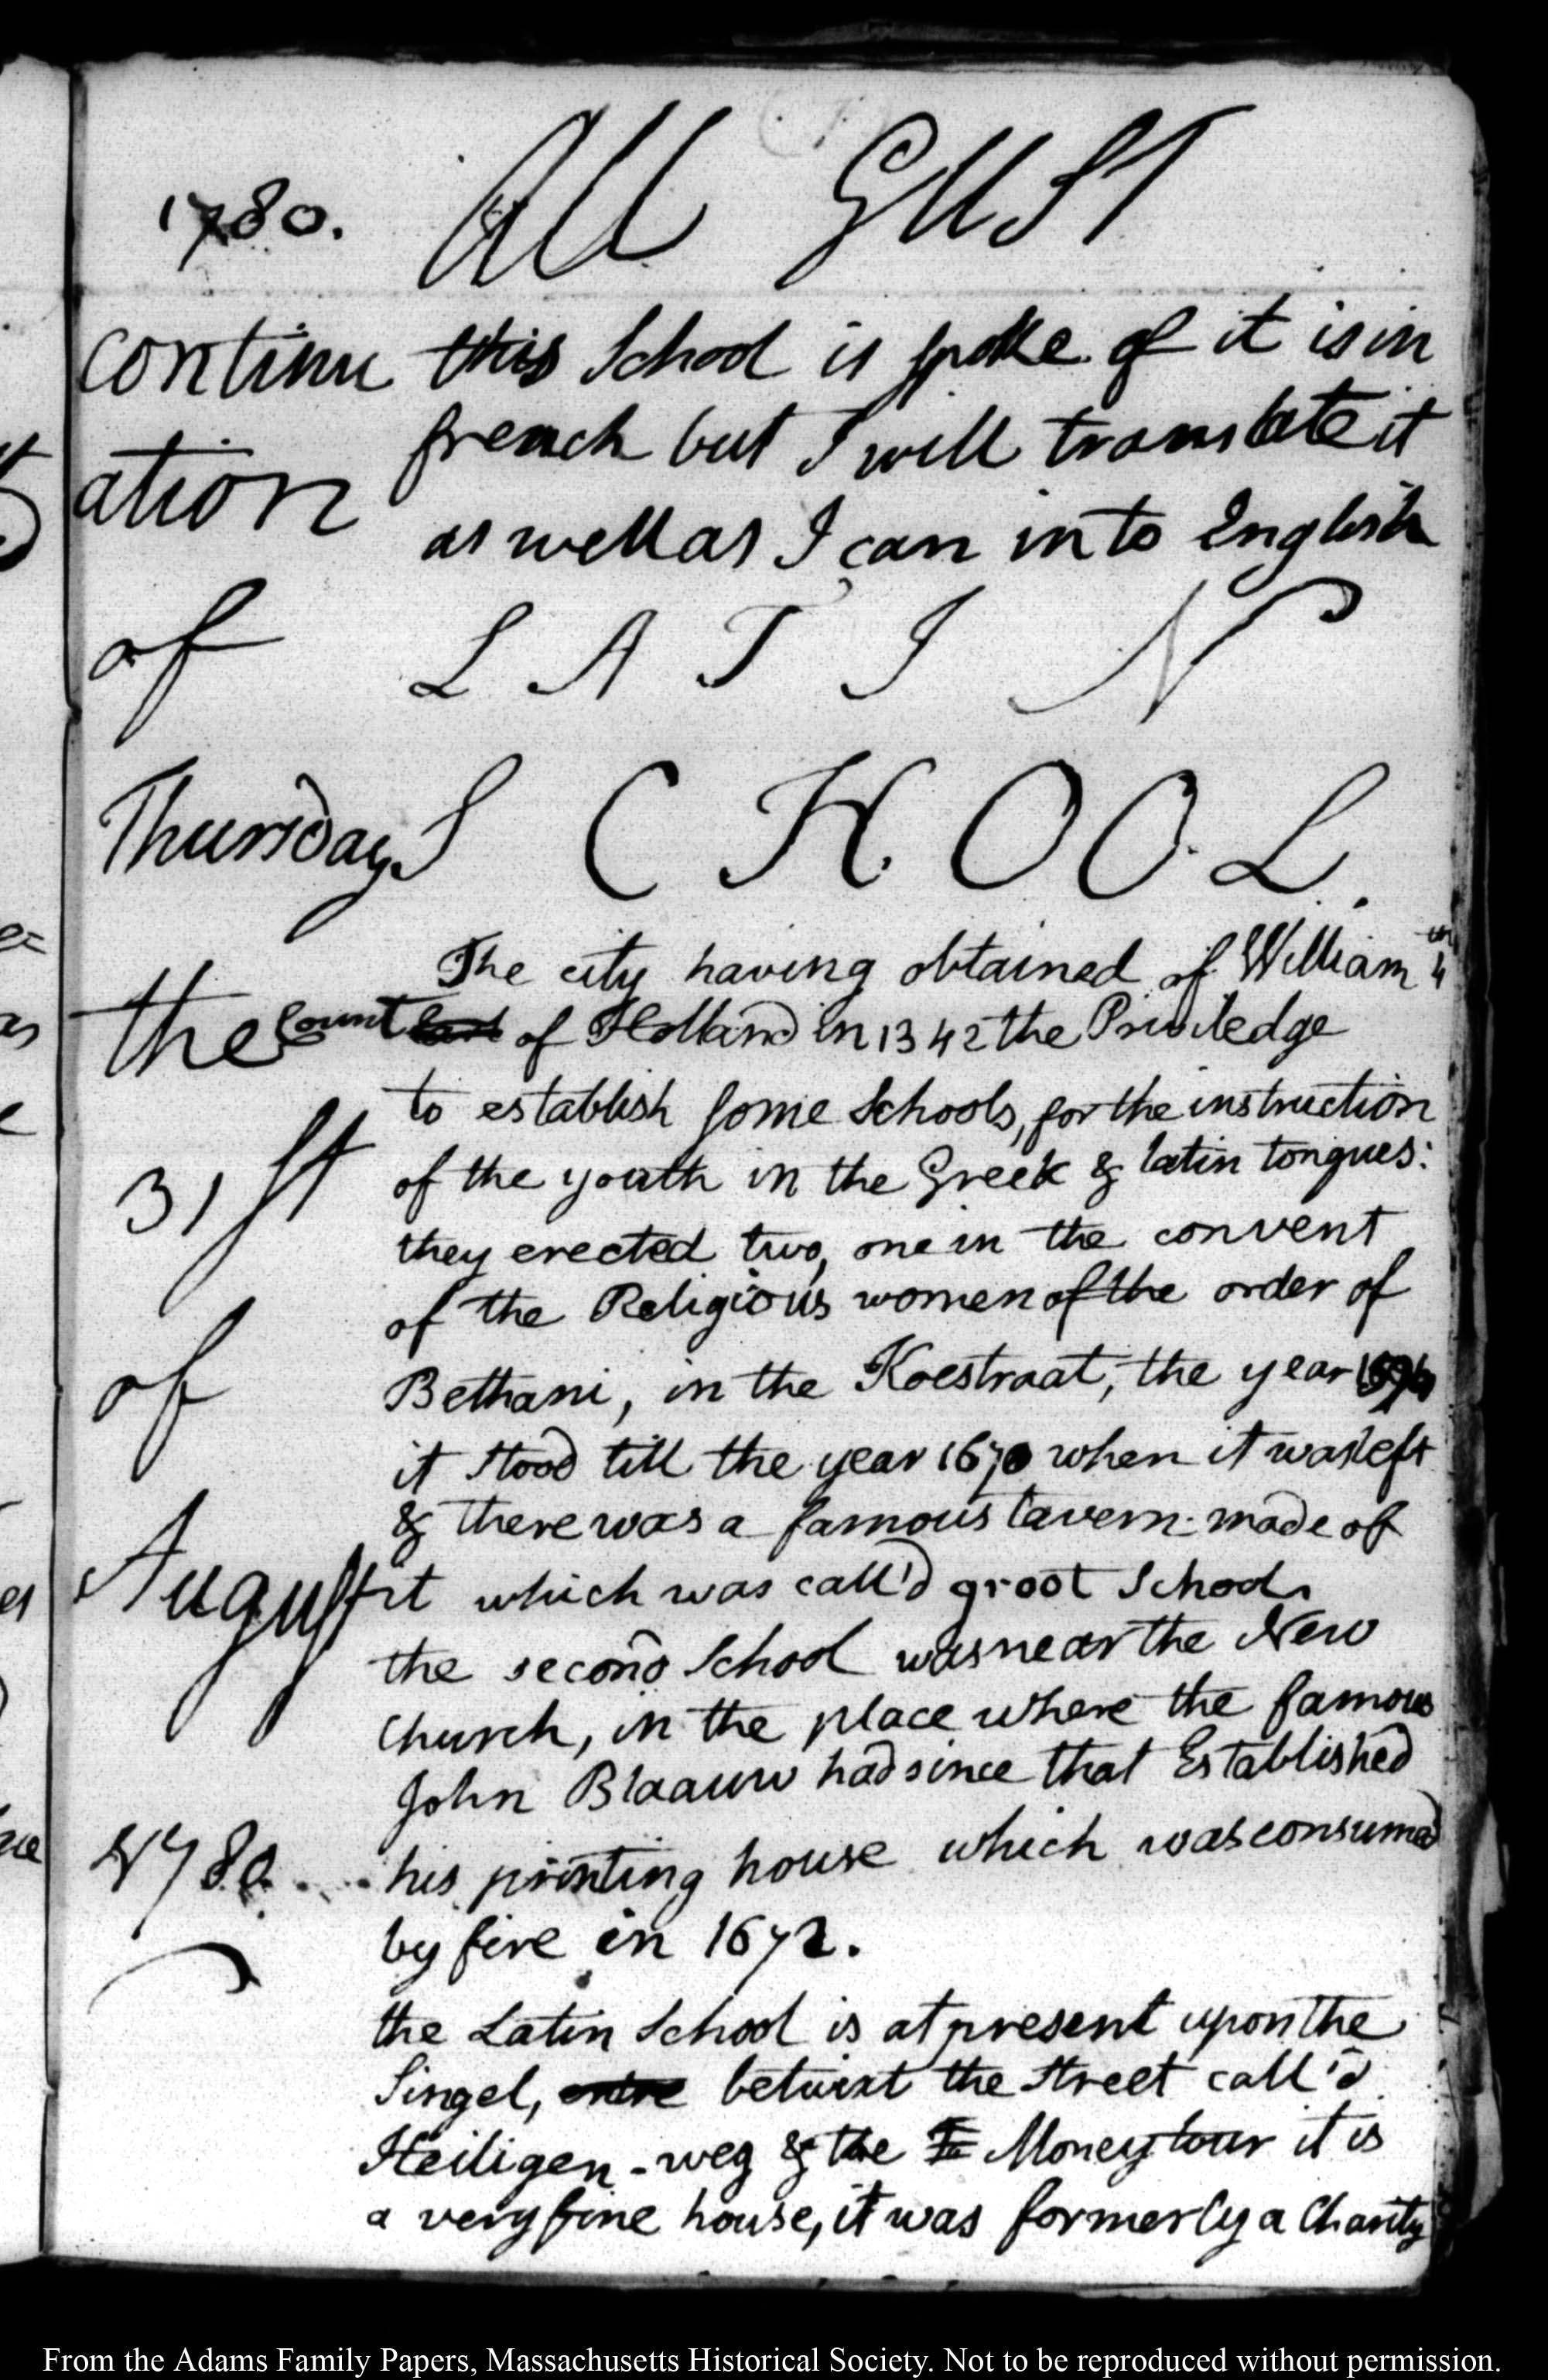 1780. AU GUST
continu
ation
of
Thursday
the
31st
of
August
1780
this School is spoke of it is in
french but I will translate it
as well as I can in to English
L A T I N
S C H O O L.
The city having obtained of William 4th
Count of Holland in 1342 the Priviledge
to establish some Schools, for the instruction
of the youth in the Greek & latin tongues:
they erected two, one in the convent
of the Religious women of the order of
Bethani, in the Koestraat, the year
it stood till the year 1670 when it was left
& there was a famous tavern made of
it which was call'd groot School.
the second School was near the New
Church, in the place where the famous
John Blaauw had since that Established
his printing house which was consumed
by fire in 1672.
the Latin School is at present upon the
Singel, entre betwixt the Street call'd
Heiligen-weg & the Money tour it is
a very fine house, it was formerly a Charity
From the Adams Family Papers, Massachusetts Historical Society. Not to be reproduced without permission.